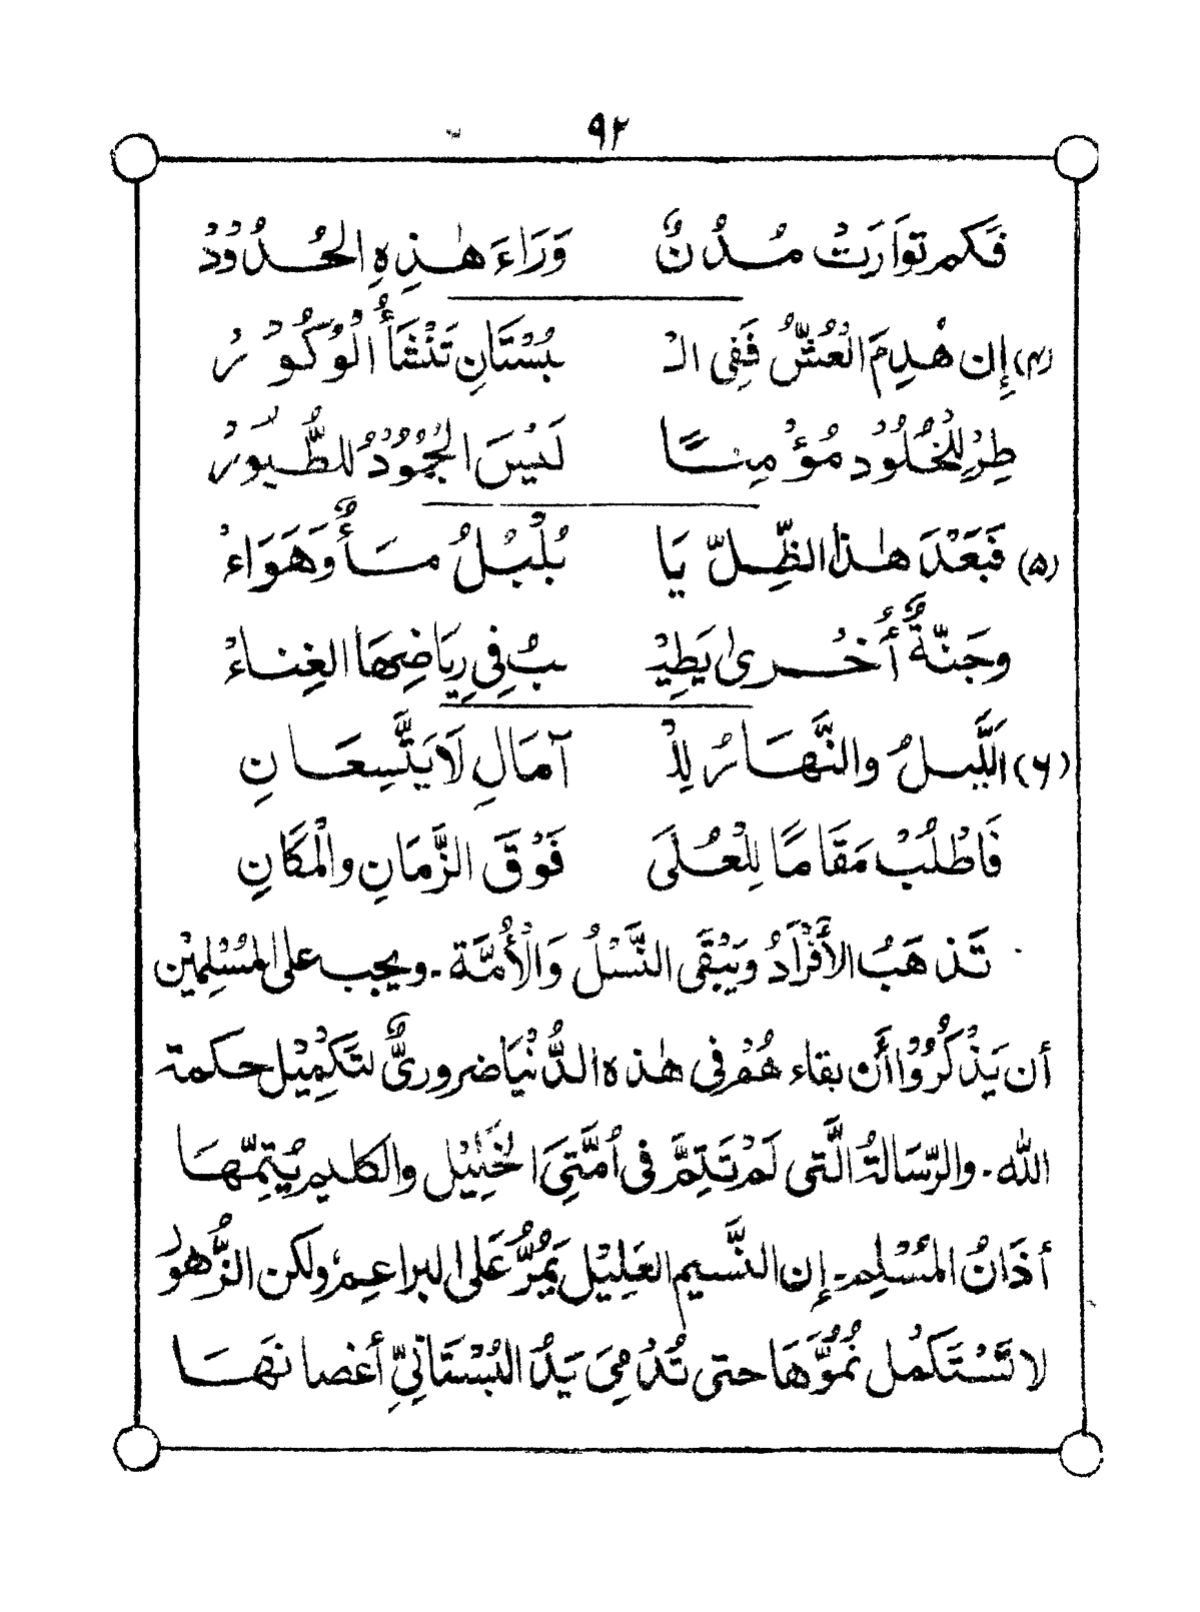 ٩٢
فَكم توَارَتْ مُدُنٌ وَرَاءَ هٰذِهِ الحُدُوْدُ
(٤) إِن هُدِمَ الْعُشُّ فَفِى الْـ بُسْتَانِ تَنْشَأُ الْوُكُوْرُ
طِرْ لِلْخُلُوْدِ مُؤْمِنًا لَيْسَ الجُمُوْدُ للطُّيُوْرُ
(٥) فَبَعْدَ هٰذا الظِّلِّ يَا بُلْبُلُ مَأٌ وَهَوَاءُ
وجَنَّةٌ أُخْرىٰ يَطِيْـ ـبُ فِي رِيَاضِهَا الغِناءُ
(٦) اَللَّيْلُ والنَّهَارُ لِلْـ آمَالِ لَا يَتَّسِعَانِ
فَاطْلُبْ مَقَامًا لِلْعُلَى فَوْقَ الزَّمَانِ والْمَكَانِ
تَذهَبُ الأَفْرَادُ وَيَبْقَى النَّسْلُ وَالْأُمَّة ـ ويجب على المُسْلِمِيْن
أن يَذْكُرُوْا أَنّ بقاء هُمْ فى هٰذه الدُّنْيَا ضرورىٌّ لتَكْمِيْل حكمة
الله ـ والرِّسَالةُ الَّتى لَمْ تَتِمَّ فى اُمَّتِىَ الخَلِيْل والكليم يُتِمّهَا
أذَانُ المُسْلِم ـ إِن النَّسِيم العَلِيْل يَمُرُّ عَلى البراعِم، ولكن الزُّهوْرُ
لا تَسْتَكمُل نُمُوَّهَا حتى تُدْمِىَ يَدُ البُسْتَانِيِّ أغصانَهَا